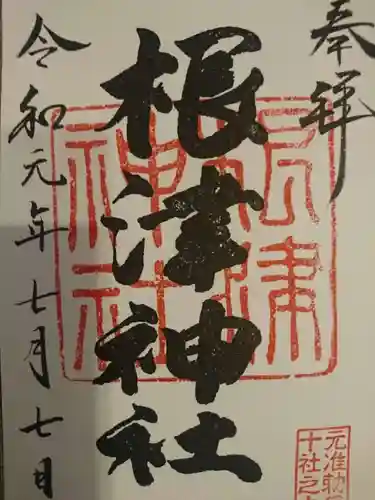 奉拝
根津神社
令和元年七月七日
根津
神社
元准勅
十社之